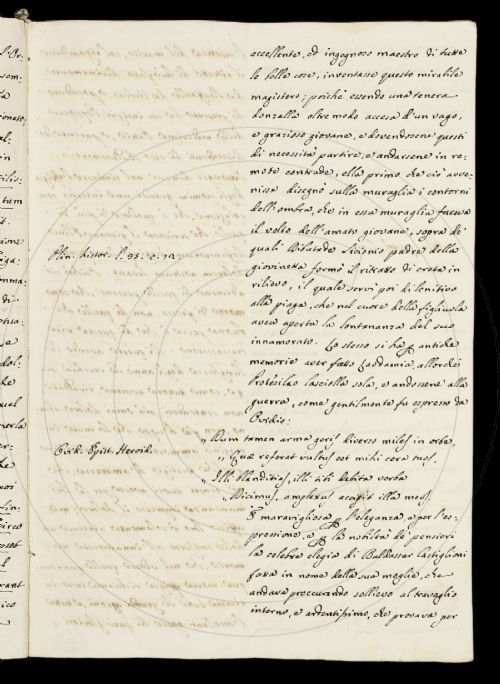 eccellente, ed ingegnoso maestro di tutte
le belle cose, inventasse questo mirabile
magistero; poichè essendo una tenera
donzella oltre modo accesa d'un vago,
e grazioso giovane, e dovendosene questi
di necessità partire, e andarsene in re-
mote contrade, ella prima che ciò avve-
nisse disegnò sulla muraglia i contorni
dell'ombra, che in essa muraglia faceva
il volto dell'amato giovane, sopra de'
quali Dibutade Sicionio padre della
giovinetta formò il ritratto di creta in
rilievo, il quale servì poi di lenitivo
alla piaga, che nel cuore della figliuola
avea aperta la lontananza del suo
innamorato. Lo stesso si ha p antiche
memorie aver fatto Laodamia, allorchè
Protesilao lasciolla sola, e andossene alla
guerra, come gentilmente fu espresso da
Ovidio:
„ Dum tamen arma geris diverso miles in orbe,
„ Quae referat vultus est mihi cera tuos.
„ Illi blanditias, illi tibi debita verba
„ Dicimus, amplexus accipit illa meos.
È maravigliosa p l'eleganza, e per l'es-
pressione, e p la nobiltà de' pensieri
la celebre elegia di Baldassar Castiglioni
fatta in nome della sua moglie, che
andava proccurando sollievo al travaglio
interno, e ardentissimo, che provava per
Plin. histor. l. 35. c. 12.
Ovid. Epist. Heroid.